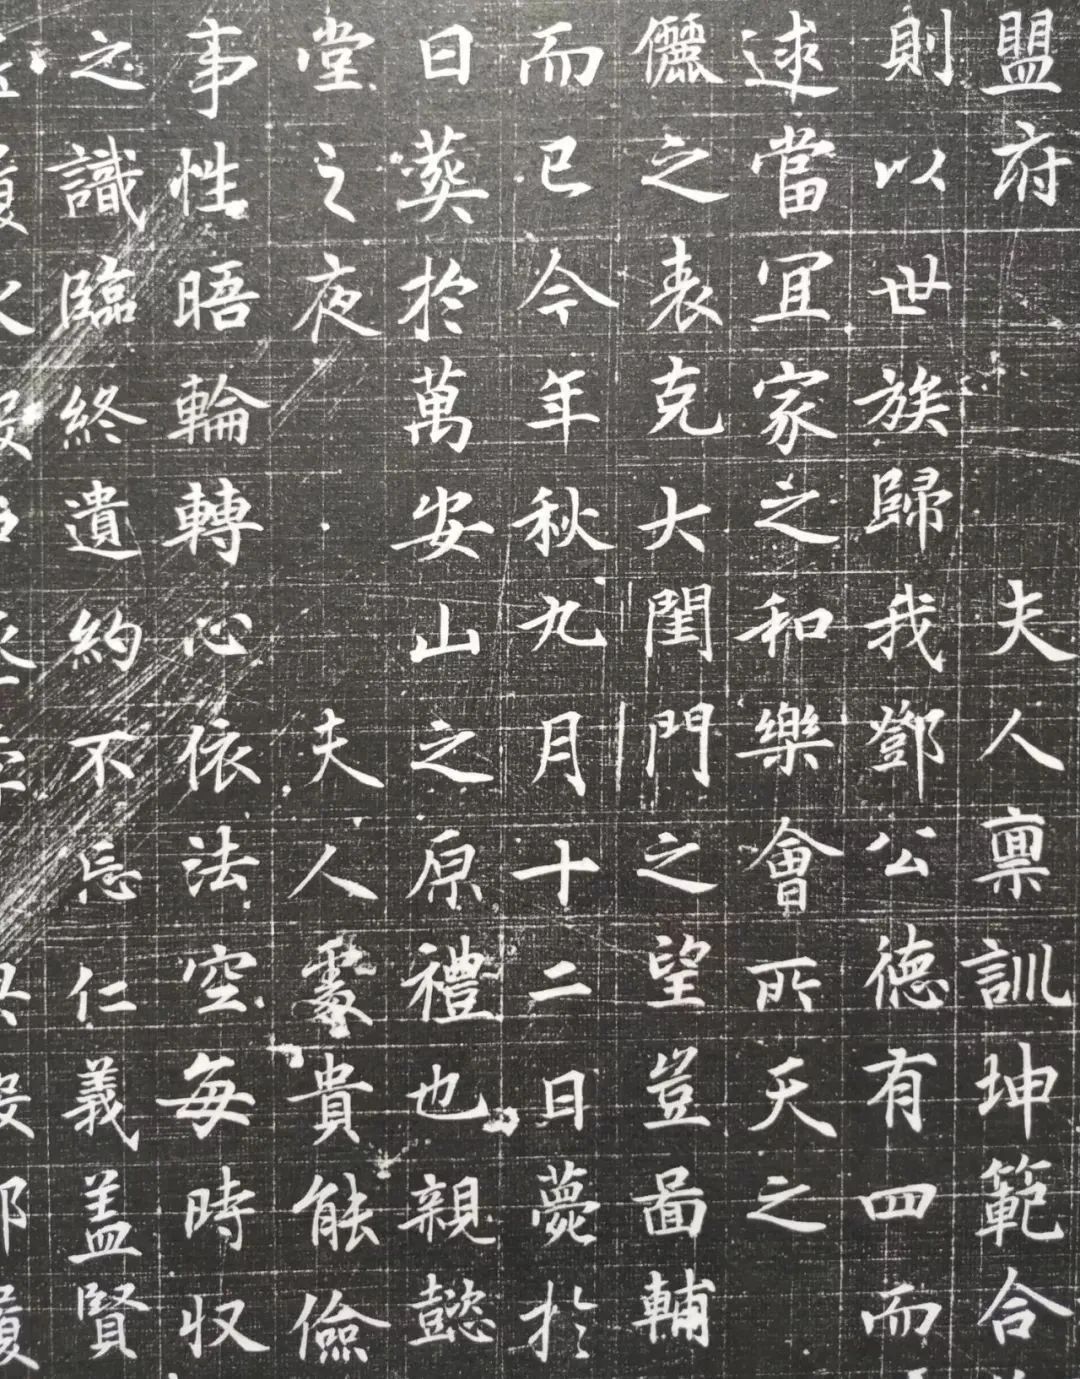 盟府　夫人禀訓坤範合
則以世族歸我鄧公德有四而
逑當宜家之和樂會所天之
儷之表克大閨門之望豈啚輔
而已今年秋九月十二日薨於
日葬於萬安山之原禮也親懿
堂之夜　夫人處貴能儉
事性晤輪轉心依法空每時収
之識臨終遺約不忘仁義盖賢